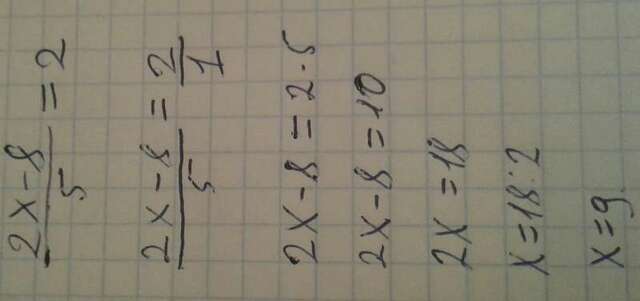 (2x-8)/5 = 2
(2x-8)/5 = 2/1
2x-8 = 2·5
2x-8 = 10
2x = 18
x = 18:2
x = 9.